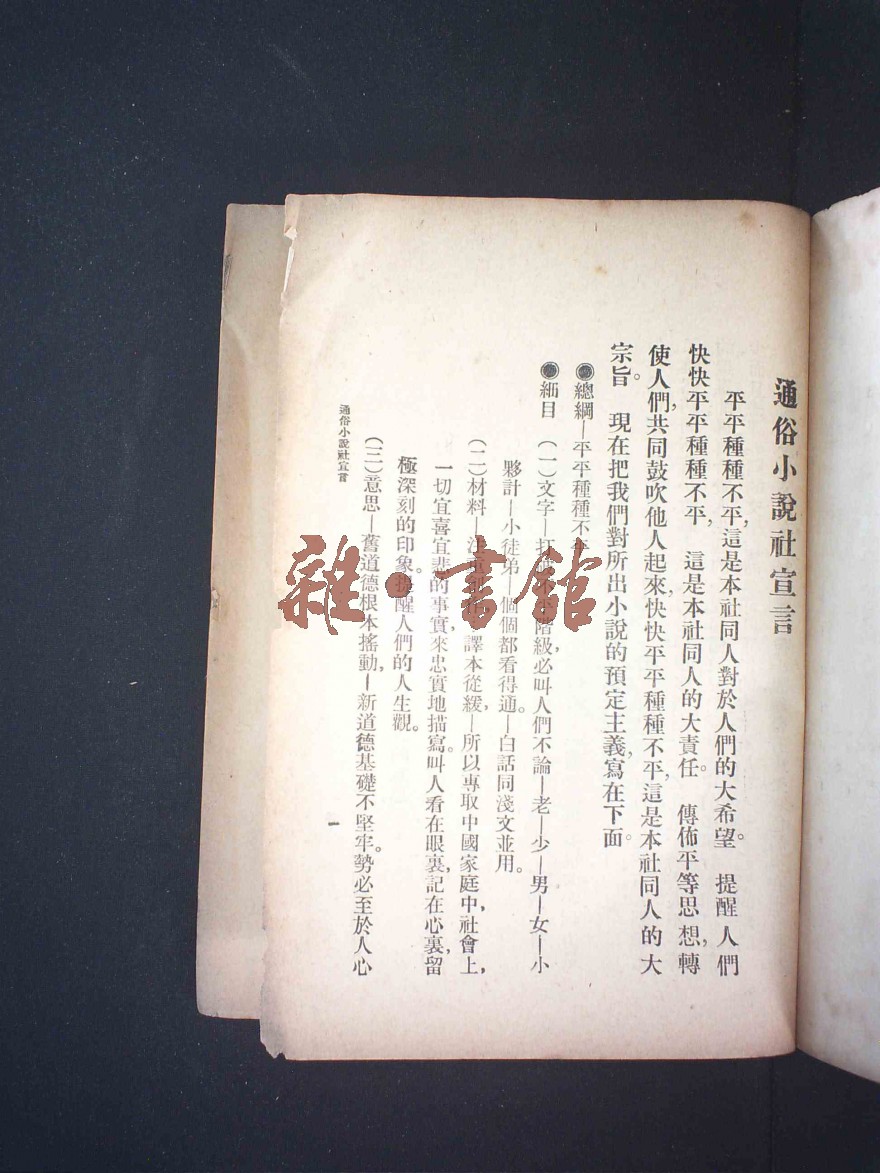 通俗小說社宣言
平平種種不平，這是本社同人對於人們的大希望。 提醒人們
快快平平種種不平， 這是本社同人的大責任。 傳佈平等思想，轉
使人們共同鼓吹他人起來，快快平平種種不平，這是本社同人的大
宗旨。 現在把我們對所出小說的預定主義，寫在下面。
●總綱—平平種種不平
●細目 （一）文字—打破不平階級，必叫人們不論—老—少—男—女—小
夥計—小徒弟—個個都看得通。—白話同淺文並用。
（二）材料—注重 譯本從緩，—所以專取中國家庭中，社會上，
一切宜喜宜悲的事實，來忠實地描寫。叫人看在眼裏，記在心裏，留
極深刻的印象。提醒人們的人生觀。
（三）意思—舊道德根本搖動，—新道德基礎不堅牢。勢必至於人心
通俗小說社宣言
一
雜·書館